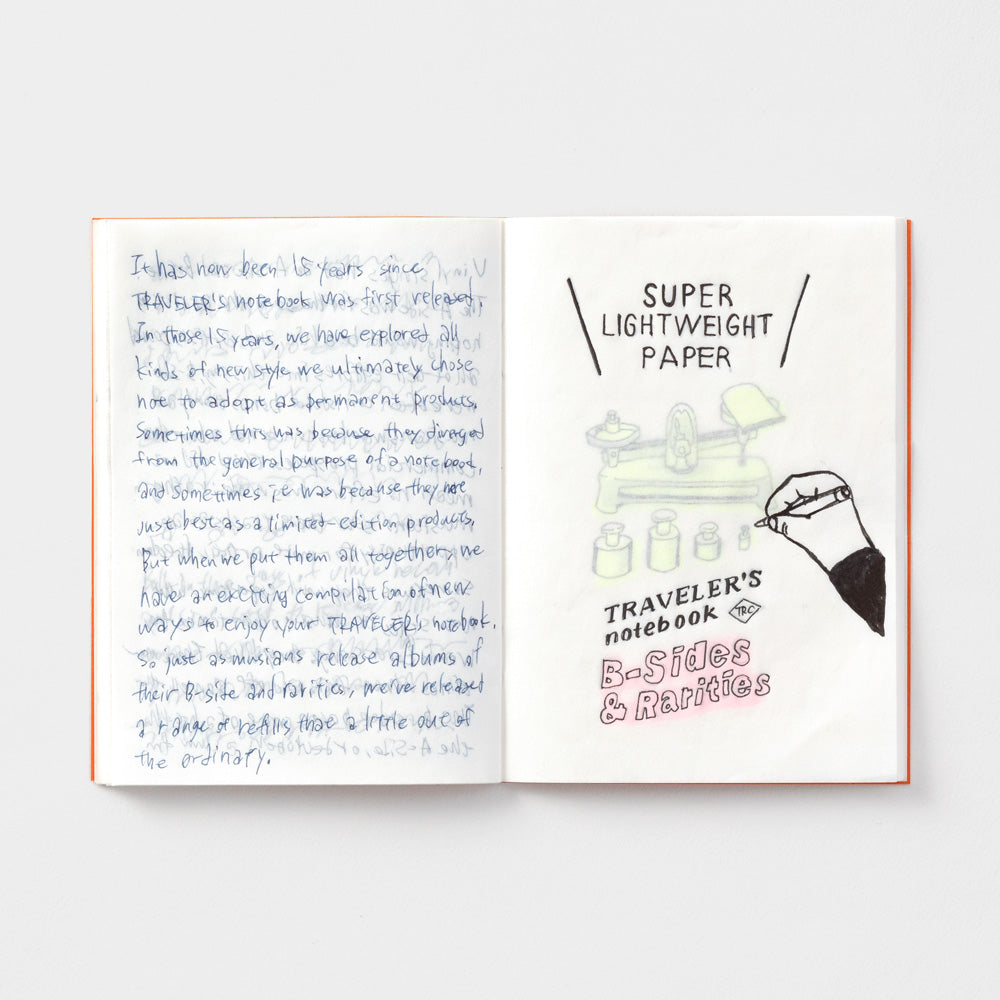 It has now been 15 years since
TRAVELER'S notebook was first released.
In those 15 years, we have explored all
kinds of new style we ultimately chose
not to adopt as permanent products.
Sometimes this was because they diverged
from the general purpose of a notebook,
and sometimes it was because they were
just best as a limited-edition products.
But when we put them all together, we
have an exciting compilation of new
ways to enjoy your TRAVELER'S notebook.
So just as musians release albums of
their B-side and rarities, we've released
a range of refills that a little out of
the ordinary.
SUPER
LIGHTWEIGHT
PAPER
TRAVELER'S
notebook TRC
B-Sides
& Rarities